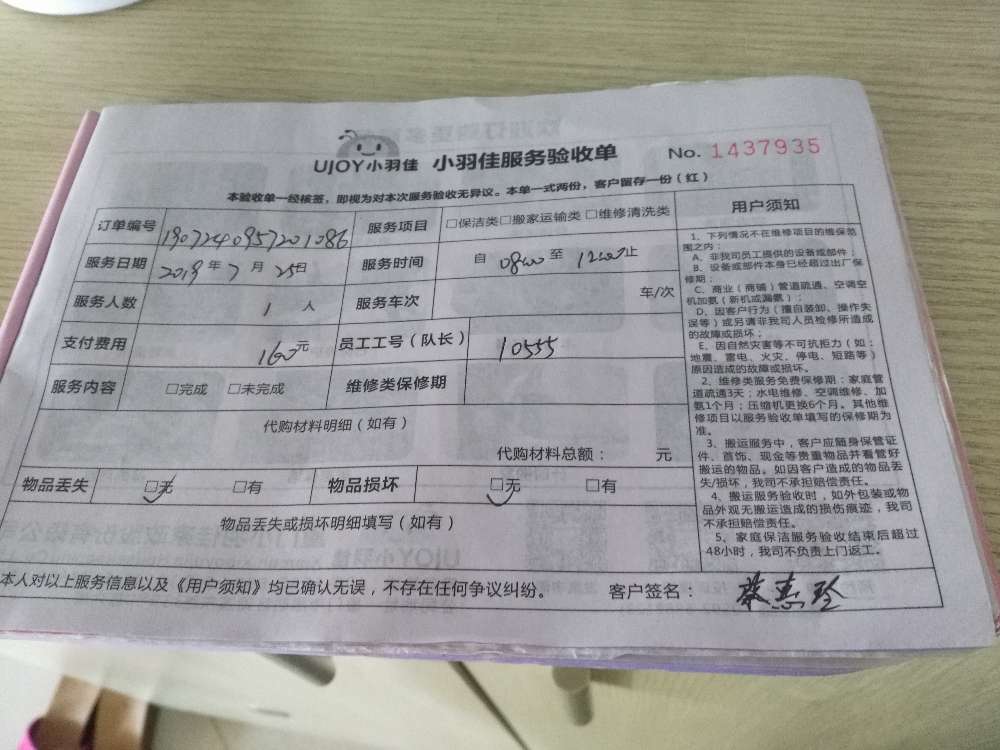 UJOY小羽佳 小羽佳服务验收单 No. 1437935
本验收单一经核签，即视为对本次服务验收无异议。本单一式两份，客户留存一份（红）
订单编号 1907240957201086 服务项目 □保洁类□搬家运输类□维修清洗类
服务日期 2019年7月25日 服务时间 自 0800 至 1200止
服务人数 1 人 服务车次 车/次
支付费用 160元 员工工号（队长） 10555
服务内容 □完成 □未完成 维修类保修期
代购材料明细（如有）
代购材料总额： 元
物品丢失 □无 □有 物品损坏 □无 □有
物品丢失或损坏明细填写（如有）
用户须知
1、下列情况不在维修项目的维保范
围之内：
A、非我司员工提供的设备或部件；
B、设备或部件本身已经超过出厂保
修期；
C、商业（商铺）管道疏通、空调空
机加氨（新机或漏氨）；
D、因客户行为（擅自装卸、操作失
误等）或另请非我司人员检修所造成
的故障或损坏；
E、因自然灾害等不可抗拒力（如：
地震、雷电、火灾、停电、短路等）
原因造成的故障或损坏。
2、维修类服务免费保修期：家庭管
道疏通3天；水电维修、空调维修、加
氨1个月；压缩机更换6个月。其他维
修项目以服务验收单填写的保修期为
准。
3、搬运服务中，客户应随身保管证
件、首饰、现金等贵重物品并看管好
搬运的物品。如因客户造成的物品丢
失/损坏，我司不承担赔偿责任。
4、搬运服务验收时，如外包装或物
品外观无搬运造成的损伤痕迹，我司
不承担赔偿责任。
5、家庭保洁服务验收结束后超过
48小时，我司不负责上门返工。
本人对以上服务信息以及《用户须知》均已确认无误，不存在任何争议纠纷。 客户签名： 蔡惠玲